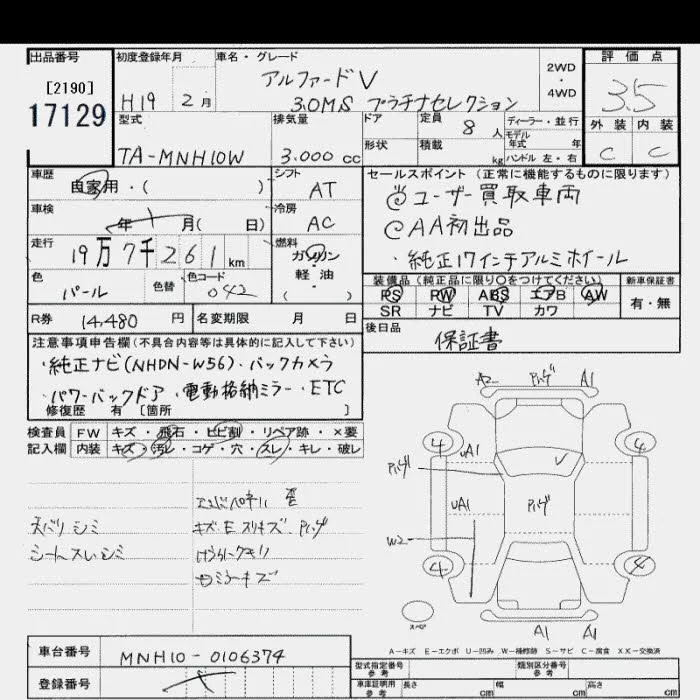 出品番号
[2190]
17129
初度登録年月
H19 2月
車名・グレード
アルファードV
3.0MS プラチナセレクション
2WD
・
4WD
評価点
3.5
外装 内装
C C
型式
TA-MNH10W
排気量
3.000 cc
ドア
形状
定員 8 人
積載 kg
ディーラー・並行
モデル年式 年
ハンドル 左・右
車歴
自家用・( )
車検
年 月( 日)
走行
19万7千261km
色
パール
色替
色コード
042
シフト
AT
冷房
AC
燃料
ガソリン
軽・油
( )
セールスポイント(正常に機能するものに限ります)
@ユーザー買取車両
@AA初出品
・純正17インチアルミホイール
装備品(純正品に限り○をつけてください)
PS PW ABS エアB AW
SR ナビ TV カワ
新車保証書
有・無
R券 14,480 円
名変期限 月 日
後日品
保証書
注意事項申告欄(不具合内容等は具体的に記入して下さい)
・純正ナビ(NHDN-W56)・バックカメラ
・パワーバックドア・電動格納ミラー・ETC
修復歴 有 [箇所 ]
検査員
記入欄
FW キズ・飛石・ヒビ割・リペア跡・×要
内装 キズ・汚レ・コゲ・穴・スレ・キレ・破レ
天バリ シミ
シートスレ シミ
エンドパネル 歪
キズ.E スリキズ.
A2 A1
4 4
uA1
uA1
W2
4 4
A1 A1
スペア
A-キズ E-エクボ U-凹み W-補修跡 S-サビ C-腐食 XX-交換済
車台番号
MNH10-0106374
登録番号
型式指定番号
参考
類別区分番号
参考
車庫証明用
参考
長さ cm
幅 cm
高さ cm